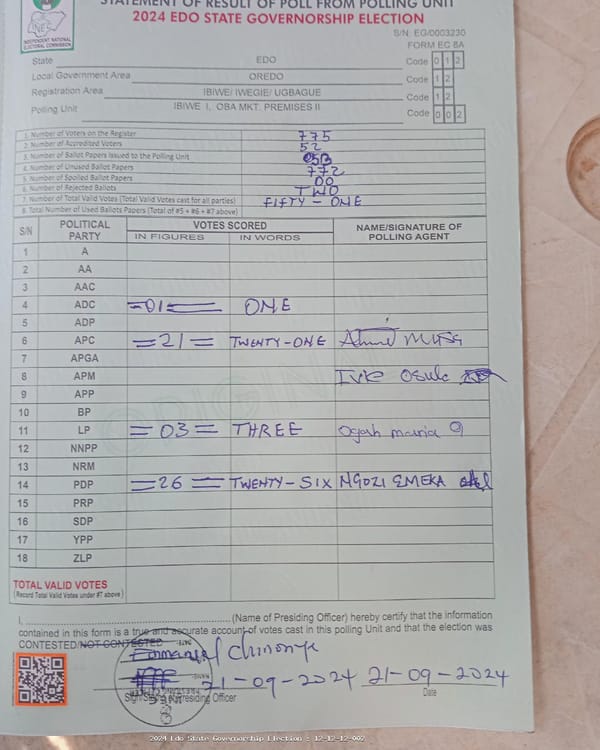 STATEMENT OF RESULT OF POLL FROM POLLING UNIT
2024 EDO STATE GOVERNORSHIP ELECTION
INEC
INDEPENDENT NATIONAL
ELECTORAL COMMISSION
S/N: EG/0003230
FORM EC 8A
State EDO Code 0 1 2
Local Government Area OREDO Code 1 2
Registration Area IBIWE/ IWEGIE/ UGBAGUE Code 1 2
Polling Unit IBIWE I, OBA MKT. PREMISES II Code 0 0 2
1. Number of Voters on the Register 775
2. Number of Accredited Voters 52
3. Number of Ballot Papers Issued to the Polling Unit
4. Number of Unused Ballot Papers 772
5. Number of Spoiled Ballot Papers 00
6. Number of Rejected Ballots TWO
7. Number of Total Valid Votes (Total Valid Votes cast for all parties) FIFTY-ONE
8. Total Number of Used Ballots Papers (Total of #5 + #6 + #7 above)
S/N POLITICAL PARTY VOTES SCORED NAME/SIGNATURE OF POLLING AGENT
IN FIGURES IN WORDS
1 A
2 AA
3 AAC
4 ADC =01= ONE
5 ADP
6 APC =21= TWENTY-ONE
7 APGA
8 APM
9 APP
10 BP
11 LP =03= THREE
12 NNPP
13 NRM
14 PDP =26= TWENTY-SIX NGOZI EMEKA
15 PRP
16 SDP
17 YPP
18 ZLP
ORIGINAL
TOTAL VALID VOTES
(Record Total Valid Votes under #7 above)
I, (Name of Presiding Officer) hereby certify that the information
contained in this form is a true and accurate account of votes cast in this polling Unit and that the election was
CONTESTED/NOT CONTESTED
Emmanuel Chinonye
21-09-2024 21-09-2024
Presiding Officer Date
2024 Edo State Governorship Election : 12-12-12-002